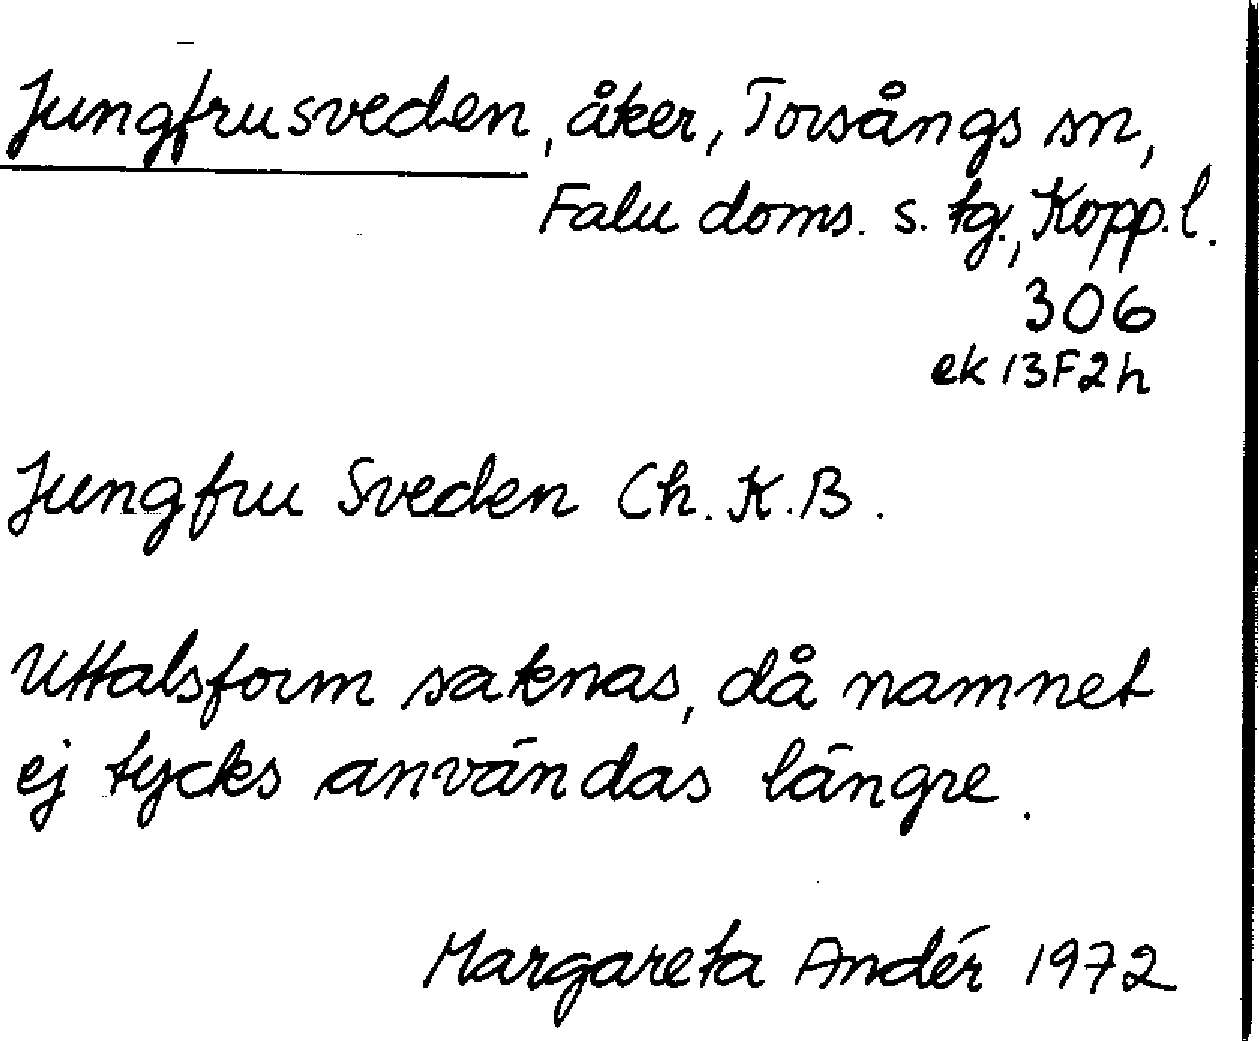 Jungfrusveden, åker, Torsångs sn,
Falu doms. s. tg., Kopp.l.
306
ek 13F2h
Jungfru Sveden Ch. K.B.
Uttalsform saknas, då namnet
ej tycks användas längre.
Margareta Andér 1972